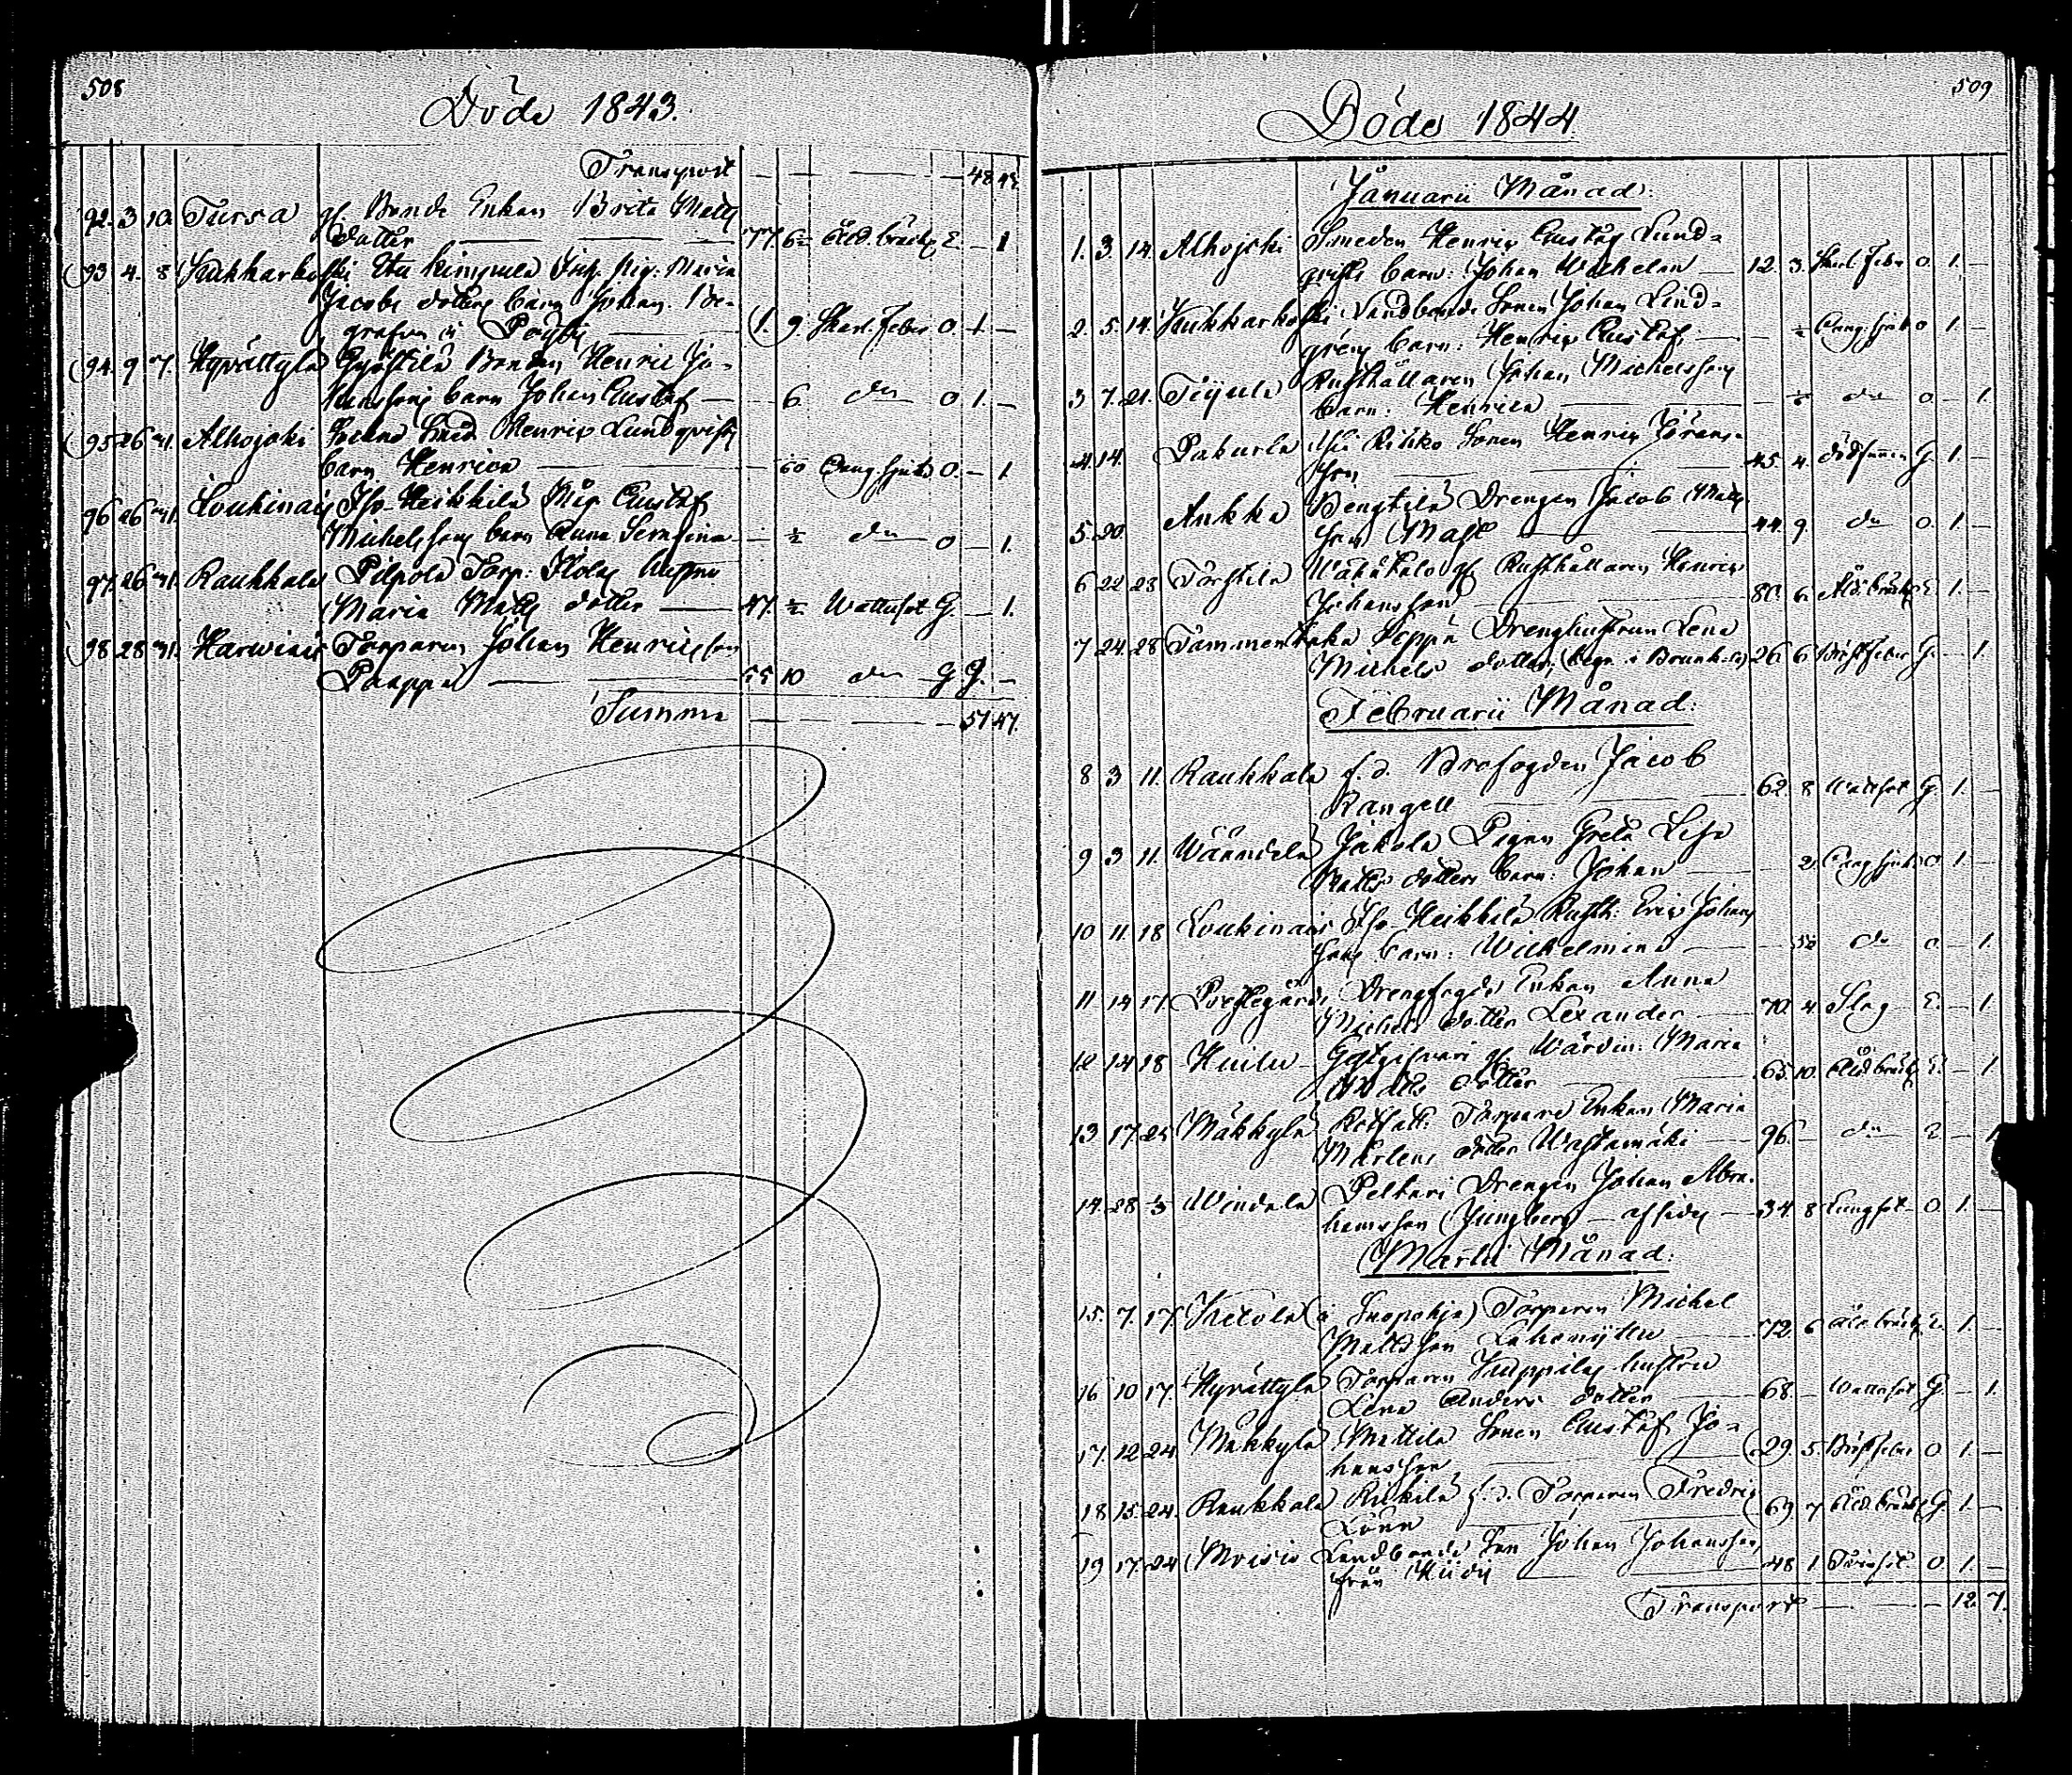 508
Döde 1843.
Transport — — — 48 43
92. 3 10. Tursa gl. Bonde Enkan Brita Matts
dotter — 77. 6 Åld. bräckl. E. — 1
93 4. 8 Kukkarkoski Jacobs dotters barn Johan. Be-
grafven i Pöytis — 1. 9 Skarl. feber O 1. —
94. 9 17. Hyvättylä Gyöstilä Bonden Henric Jo-
hanssons barn Johan Gustaf — 6 do O 1. —
95 26 31. Alhojoki Smed Henric Lundqvists
barn Henrica — Oang. sjukd. O. — 1
96 26 31. Loukinais Iso-Heikkilä Gustaf
Michelssons barn Anna Serafina — ½ do O — 1.
97. 26 31. Raukkala Pilpola Torp. hustru
Maria Matts dotter — 47. ½ Wattusot G. — 1.
98 28 31. Harwiais Torparen Johan Henricsson
Paappa — 55 10 do G —
Summa — — — 51 47.
509
Döde 1844
Januarii Månad:
1. 3. 14. Alhojoki Smeden Henric Gustaf Lund-
qvists barn: Johan Wilhelm — 12. 3. Skarl. feber O. 1. —
2. 5. 14. Kukkarkoski Landbonde Sonen Johan Lind-
gréns barn: Henric Gustaf — Oang. sjukd. O 1. —
3 7. 21. Tijula Rusthållaren Johan Michelssons
barn: Henrica — do O — 1.
4. 14. Pakurla Rihko Sonen Henric Görans-
son — 45. 4. dödfunnen G. 1. —
5. 20. Ankka Bengtilä Drengen Jacob Matts
son — 44. 9. do O. 1. —
6 22 28 Torstila Wähätalo gl. Rusthållaren Henric
Johansson — 80. 6. Åld. bräckl. E. 1. —
7 24. 28 Tammentaka Seppä Drenghustrun Lena
Michels dotter, (begr. i Brunkala) 26. 6 Bröstfeber G. — 1.
Februarii Månad:
8 3 11. Raukkala f. d. Brofogden Jacob
Rangell — 62. 8 Wattusot G. 1. —
9 3 11. Wäändelä Jakola Pigan Greta Lisa
Matts dotters barn: Johan — 2. Oang. sjukd. O 1. —
10 11 18 Loukinais Iso-Heikkilä Rusth: Eric Johans
sons barn: Wilhelmina — do O — 1.
11 14 17. Prestegård Drengfogde Enkan Anna
Michels dotter Lexander — 70. 4 Slag E. — 1.
12 14 18 Huilu Gästgifvari gl. Wärdin: Maria
Matts dotter — 65. 10. Åld. bräckl. E. — 1
13 17. 25 Mäkkylä Torpare Enkan Maria
Mårtens dotter Wastamäki — 96. — do E — 1
14. 28 3 Windala Peltari Drengen Johan Abra-
hamsson Ljungberg — afliden — 34. 8 Lungsot O. 1. —
Martii Månad:
15. 7. 17. Ketola (å Suopohja) Torparen Michel
Mattsson — 72. 6 Åld. bräckl. E. 1. —
16 10 17. Hyvättylä Torparen Kuppilas hustru
Lena Anders dotter — 68. — Wattusot G. — 1.
17. 12 24. Mäkkylä Mattila Sonen Gustaf Jo-
hansson — 29. 5. Bröstfeber O 1. —
18 15. 24. Raukkala Rikilä f. d. Torparen Fredric
Lönn — 69. 7 Åld. bräckl. G 1. —
19 17. 24 Moisio Landbonde Son Johan Johansson
från — 48 1 O 1. —
Transport — — — 12. 7.